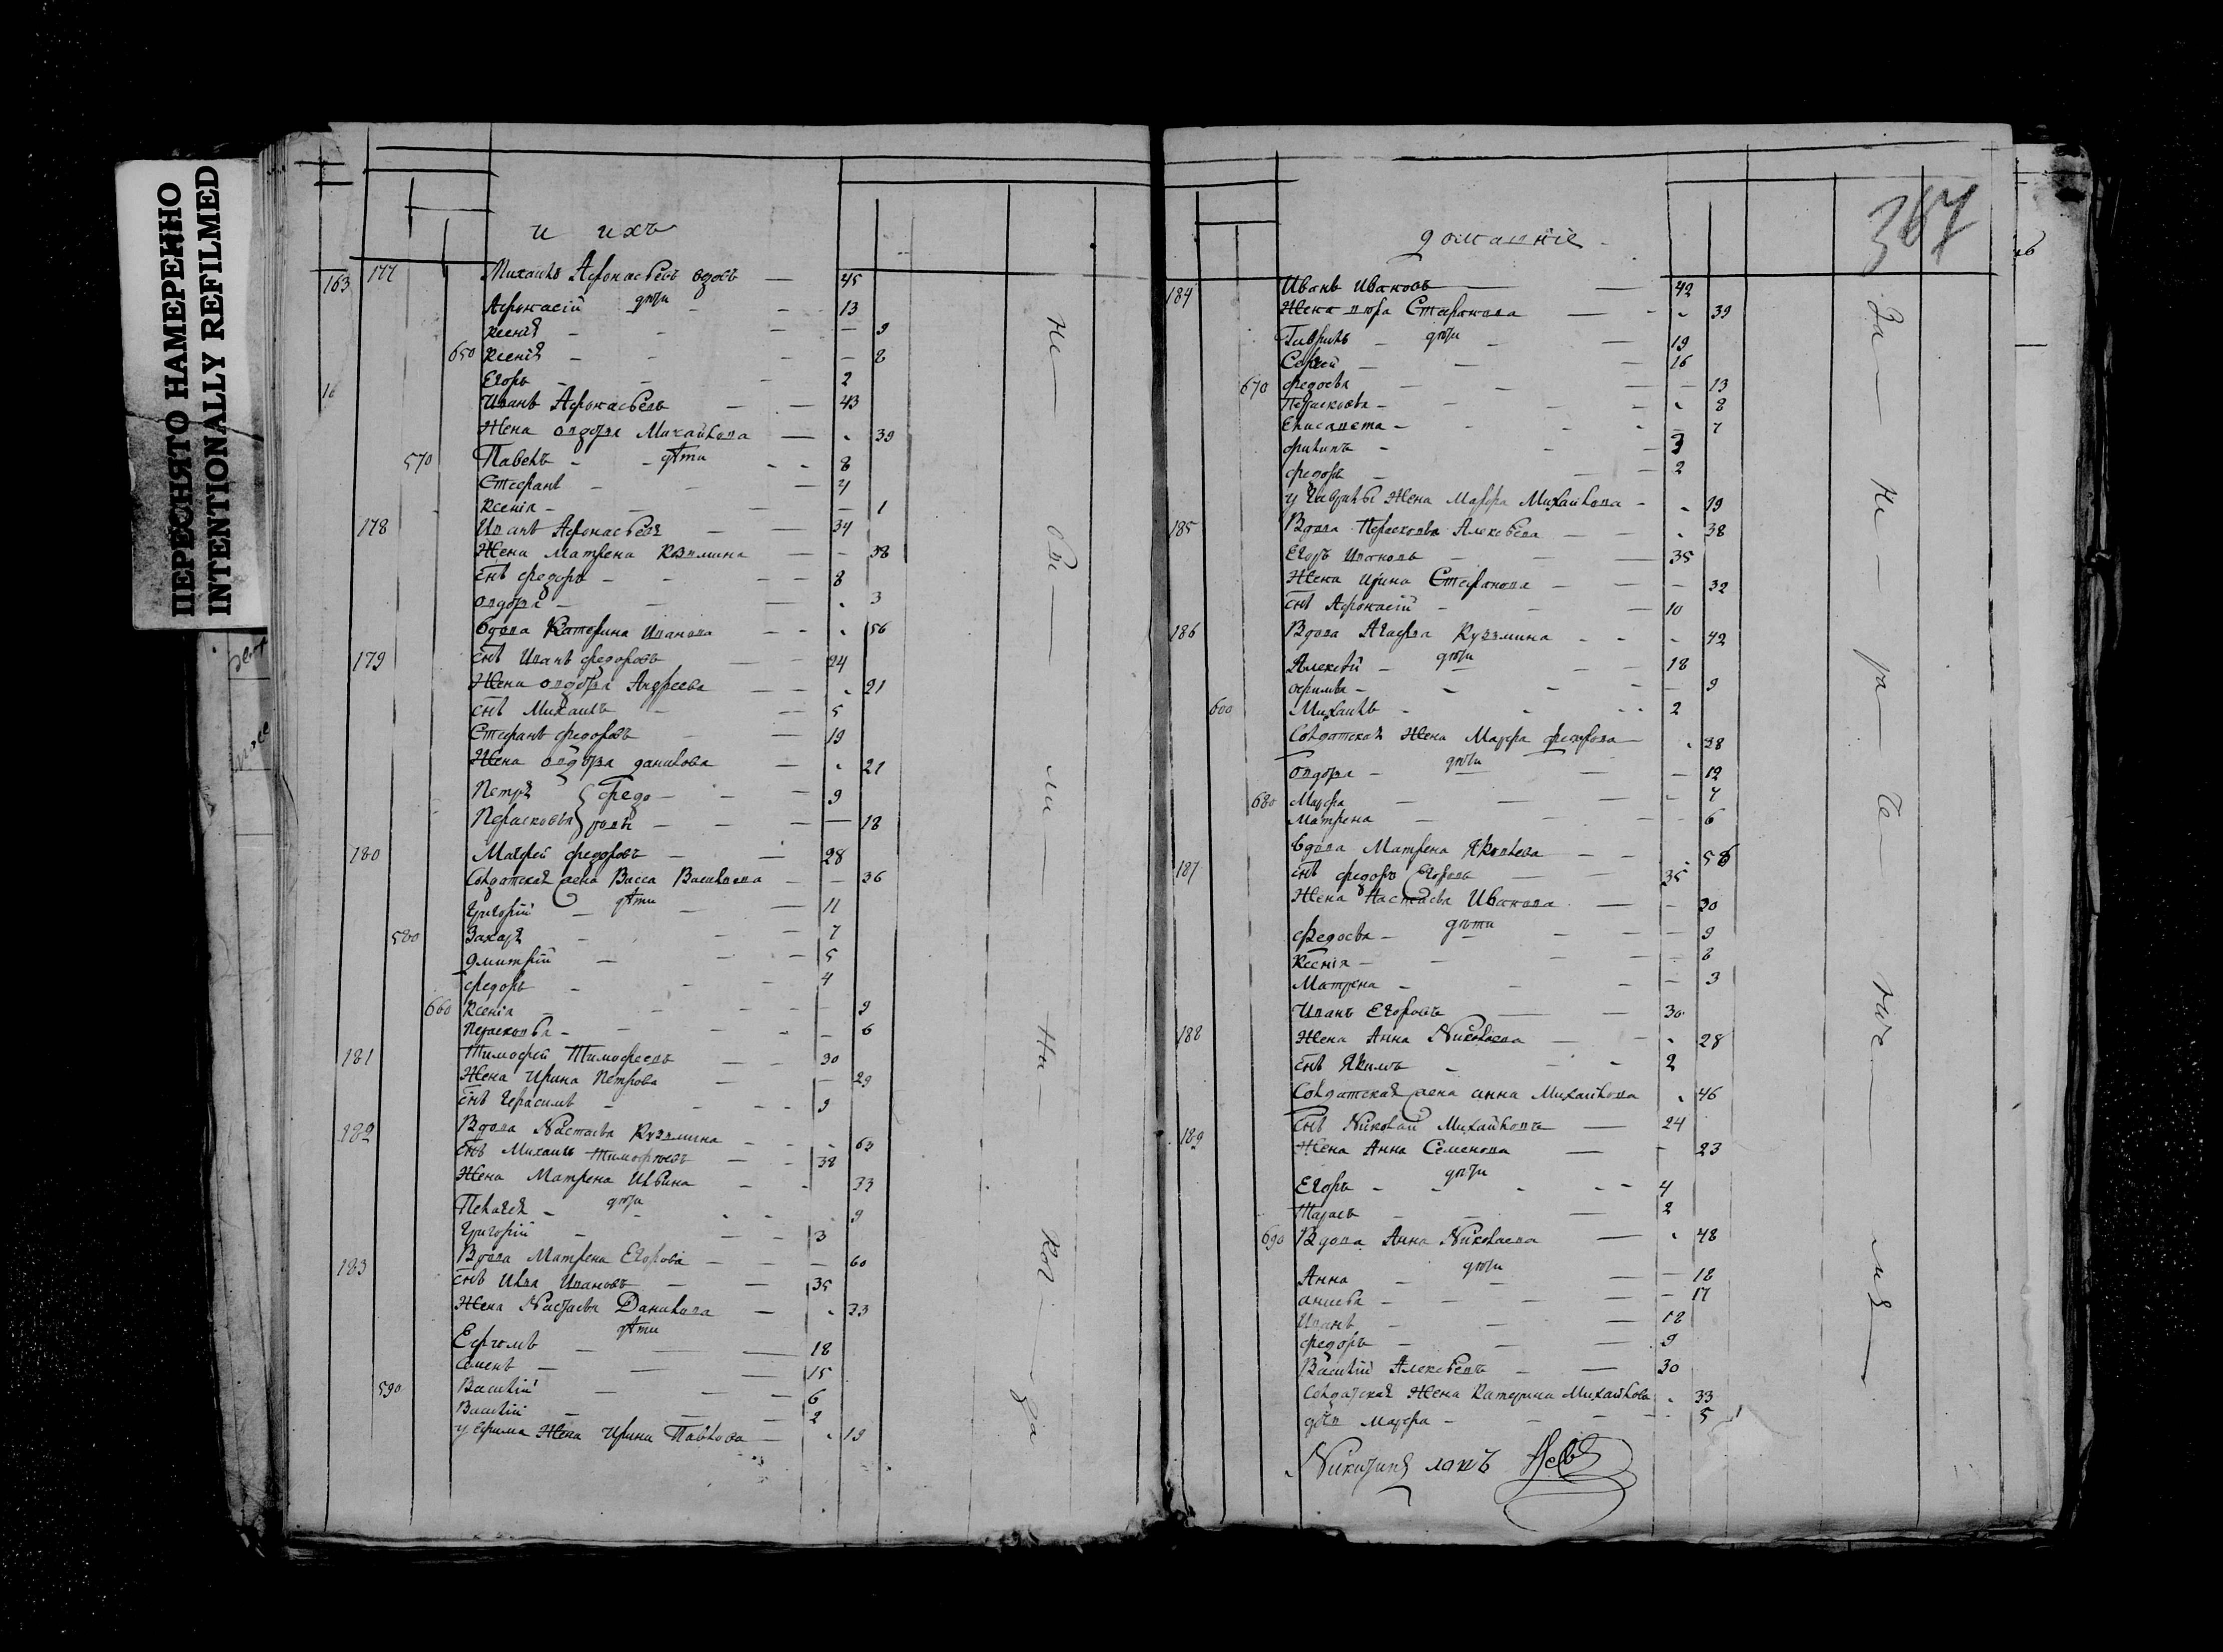 ПЕРЕСНЯТО НАМЕРЕННО
INTENTIONALLY REFILMED
и ихъ
163 177 Михаилъ Афонасьевъ вдовъ 45
дѣти
Афонасій 13
Ксенія 9
650 Ксенія 8
Егоръ 2
Иванъ Афонасьевъ 43
Жена Михайлова 39
570 Павелъ дѣти 8
Стефанъ 4
Ксенія 1
178 Иванъ Афонасьевъ 34
Жена Матрена Козмина 38
Снъ Федоръ 8
3
вдова Катерина Иванова 56
179 Снъ Иванъ Федоровъ 24
Жена Андреева 21
Снъ Михаилъ 5
Стефанъ Федоровъ 19
Жена Данилова 21
Петръ Федо 9
Перасковья ровы 18
180 Матфей Федоровъ 28
Солдатская жена Васса Васильева 36
дѣти
Григорій 11
580 Захаръ 7
Дмитрій 5
Федоръ 4
660 Ксенія 9
Перасковья 6
181 Тимофей Тимофеевъ 30
Жена Ирина Петрова 29
Снъ Герасимъ 9
182 Вдова Настасья Кузмина 63
Снъ Михаилъ Тимофеевъ 38
Жена Матрена Ильина 33
дѣти
Пелагея 9
Григорій 3
183 Вдова Матрена Егорова 60
Снъ Илья Ивановъ 35
Жена Настасья Данилова 33
дѣти
Ефимъ 18
Семенъ 15
590 Василій 6
Василій 2
у Ефима Жена Ирина Павлова 19
Не бы ли ни ког да
домашніе
387
184 Иванъ Ивановъ 42
Жена Стефанова 39
Гаврилъ дѣти 19
Сергей 16
670 Федосья 13
Перасковья 8
Елисавета 7
Филипъ 3
Федоръ 2
у Гаврилы Жена Марфа Михайлова 19
185 Вдова Перасковья Алексѣева 38
Егоръ Ивановъ 35
Жена Ирина Стефанова 32
Снъ Афонасій 10
186 Вдова Агафья Кузмина 42
дѣти
Алексѣй 18
9
600 Михаилъ 2
Солдатская Жена Марфа Федорова 38
дѣти
12
680 Марфа 7
Матрена 6
вдова Матрена Яковлева 58
187 Снъ Федоръ Егоровъ 35
Жена Настасья Иванова 30
дѣти
Федосья 9
Ксенія 8
Матрена 3
Иванъ Егоровъ 30
188 Жена Анна Николаева 28
Снъ Якимъ 2
Солдатская жена Анна Михайлова 46
189 Снъ Николай Михайловъ 24
Жена Анна Семенова 23
дѣти
Егоръ 4
Тарасъ 2
690 Вдова Анна Николаева 48
дѣти
Анна 18
Анисья 17
Иванъ 12
Федоръ 9
Василій Алексѣевъ 30
Солдатская Жена Катерина Михайлова 33
дочь Марфа 5
За не ра